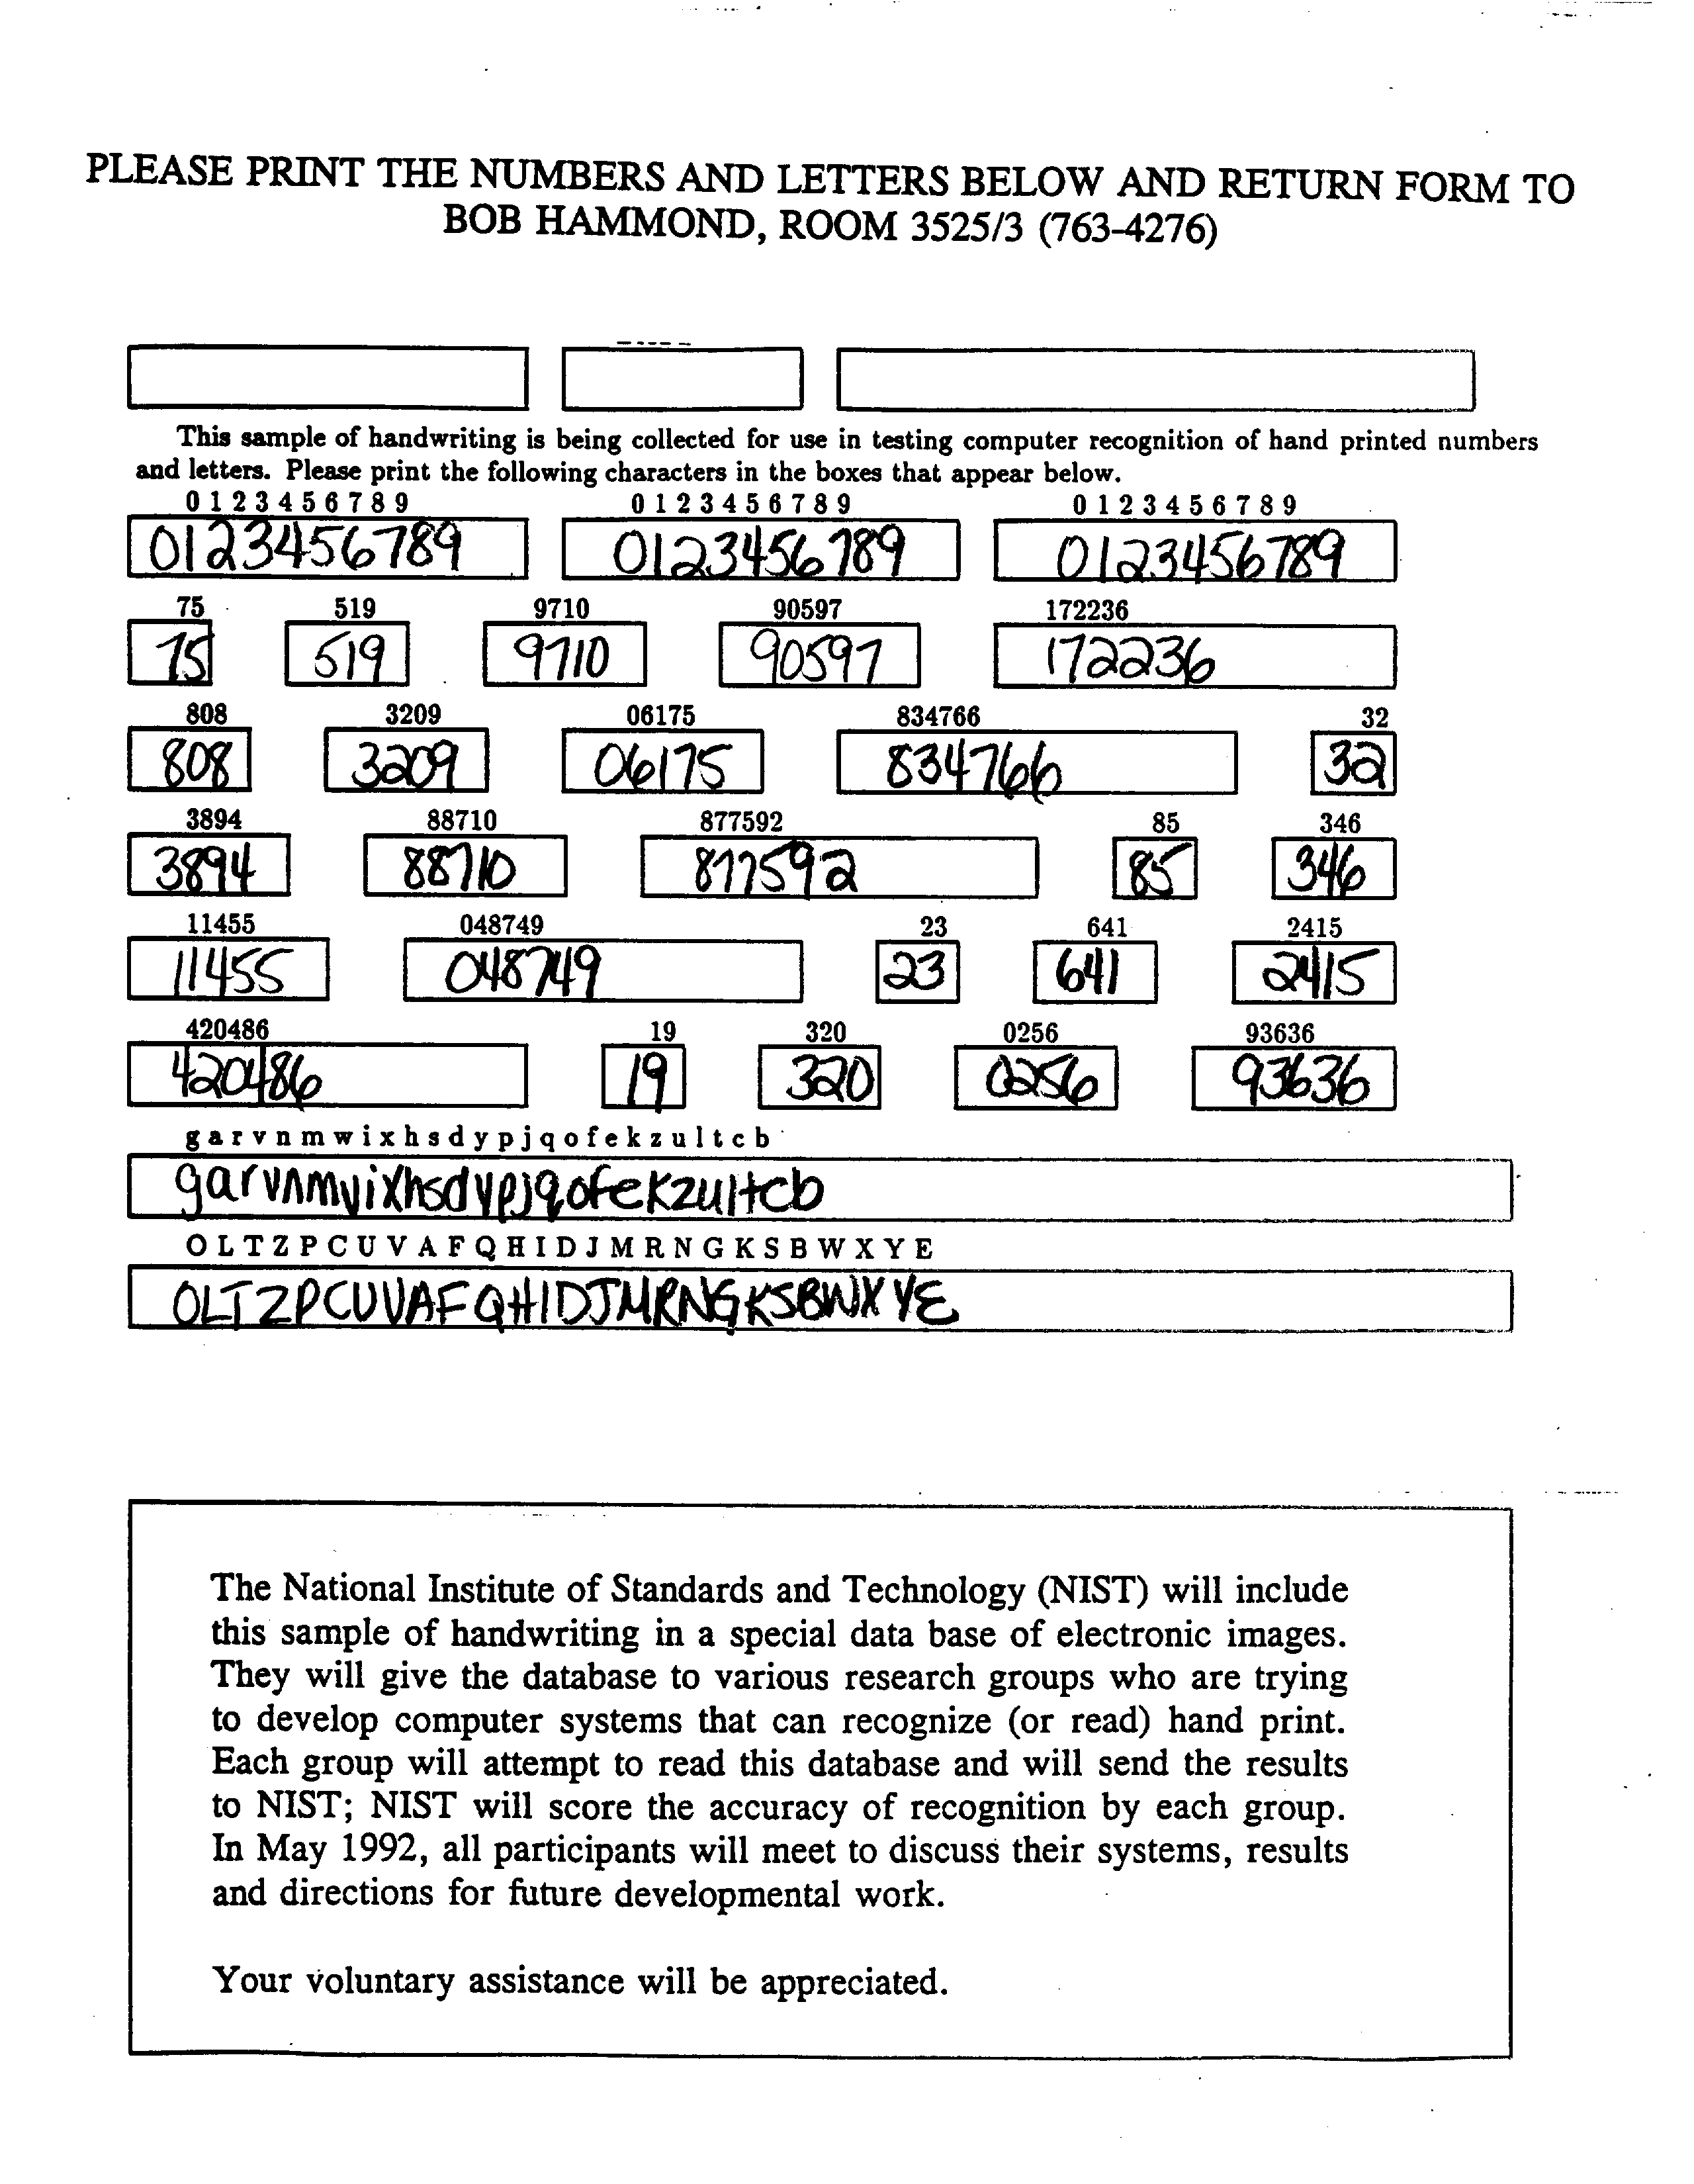 PLEASE PRINT THE NUMBERS AND LETTERS BELOW AND RETURN FORM TO
BOB HAMMOND, ROOM 3525/3 (763-4276)
This sample of handwriting is being collected for use in testing computer recognition of hand printed numbers
and letters. Please print the following characters in the boxes that appear below.
0 1 2 3 4 5 6 7 8 9 0 1 2 3 4 5 6 7 8 9 0 1 2 3 4 5 6 7 8 9
0123456789 0123456789 0123456789
75 519 9710 90597 172236
75 519 9710 90597 172236
808 3209 06175 834766 32
808 3209 06175 834766 32
3894 88710 877592 85 346
3894 88710 877592 85 346
11455 048749 23 641 2415
11455 048749 23 641 2415
420486 19 320 0256 93636
420486 19 320 0256 93636
g a r v n m w i x h s d y p j q o f e k z u l t c b
garvnmyixhsdypjqofekzultcb
O L T Z P C U V A F Q H I D J M R N G K S B W X Y E
OLTZPCUVAFQHIDJMRNGKSBWXYE
The National Institute of Standards and Technology (NIST) will include
this sample of handwriting in a special data base of electronic images.
They will give the database to various research groups who are trying
to develop computer systems that can recognize (or read) hand print.
Each group will attempt to read this database and will send the results
to NIST; NIST will score the accuracy of recognition by each group.
In May 1992, all participants will meet to discuss their systems, results
and directions for future developmental work.
Your voluntary assistance will be appreciated.